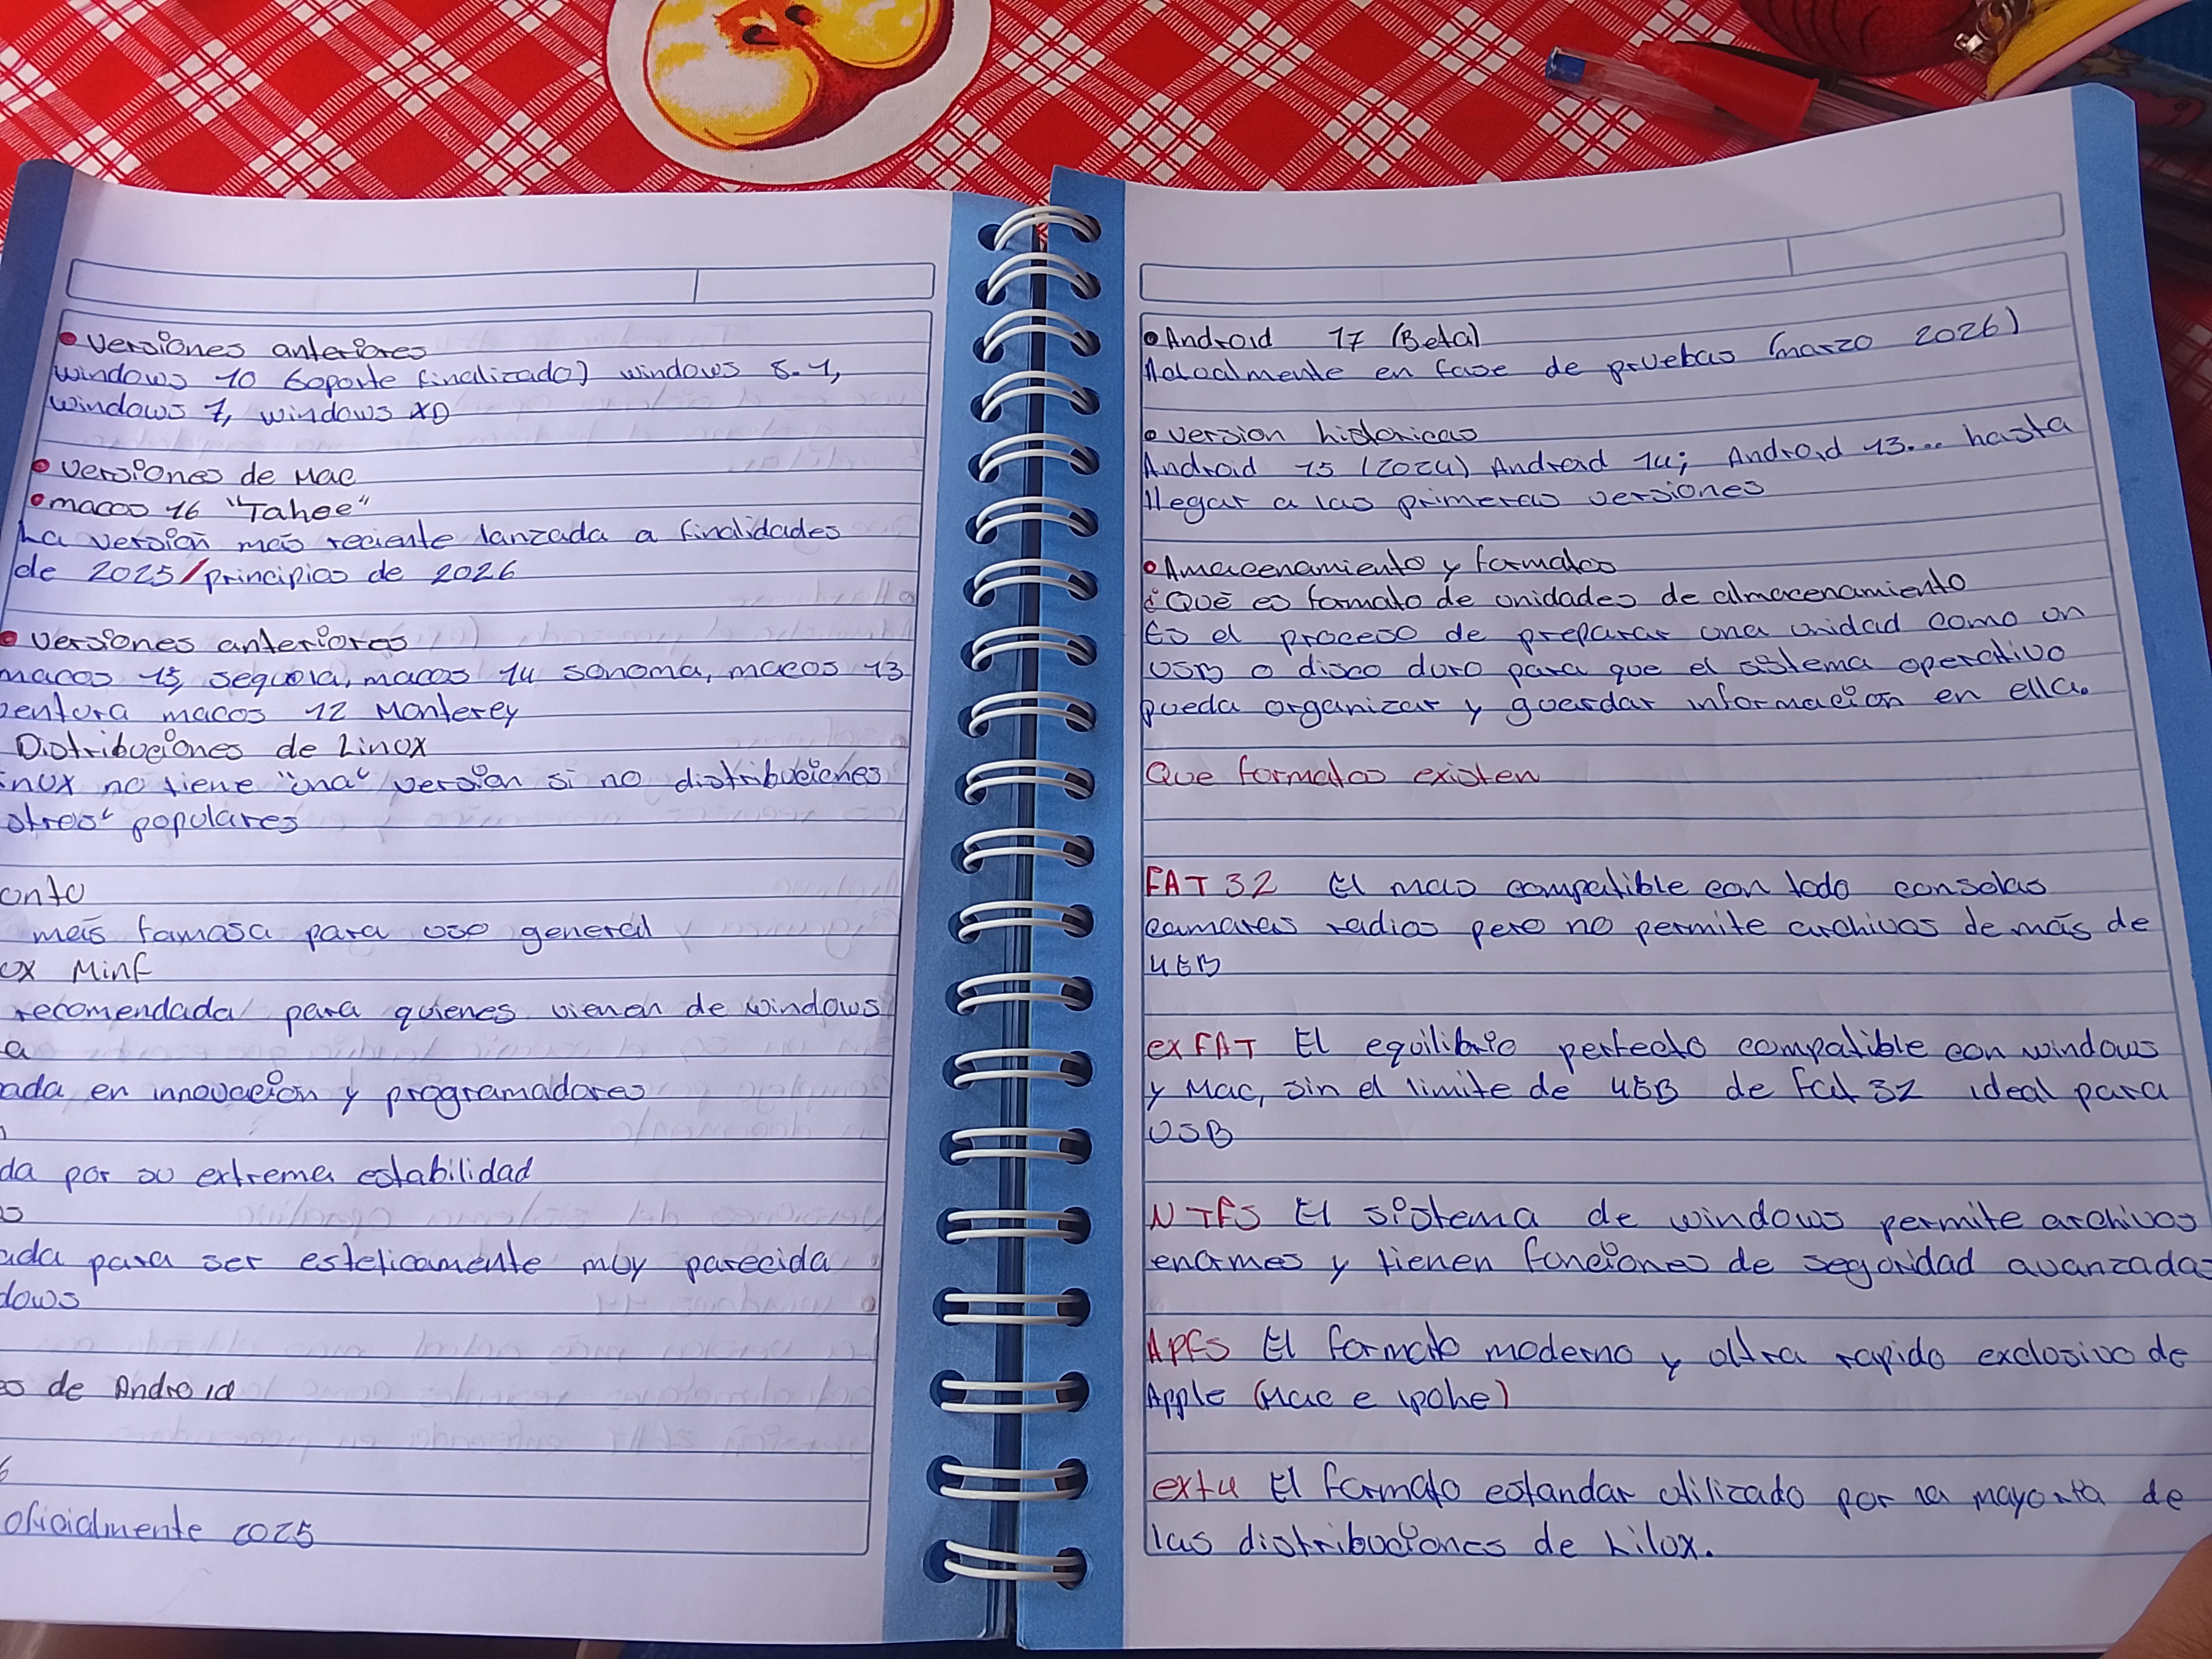 • Versiones anteriores
windows 10 soporte finalizado) windows 8.1,
windows 7, windows XP
• Versiones de Mac
• macos 16 "Tahoe"
La versión más reciente lanzada a finalidades
de 2025/principios de 2026
• versiones anteriores
macos 15, sequoia, macos 14 sonoma, macos 13
ventura macos 12 Monterey
Distribuciones de Linux
inux no tiene "una" versión si no distribuciones
populares
más famosa para uso general
ux Mint
recomendada para quienes vienen de windows
a
ada en innovación y programadores
da por su extrema estabilidad
os
ada para ser esteticamente muy parecida
dows
es de Android
6
oficialmente 2025
• Android 17 (Beta)
Actualmente en fase de pruebas (marzo 2026)
• version historicas
Android 15 (2024) Android 14; Android 13... hasta
llegar a las primeras versiones
• Amacenamiento y formatos
¿Qué es formato de unidades de almacenamiento
Es el proceso de preparar una unidad como un
USB o disco duro para que el sistema operativo
pueda organizar y guardar información en ella.
Que formatos existen
FAT 32 El mas compatible con todo consolas
camaras radios pero no permite archivos de más de
4GB
exFAT El equilibrio perfecto compatible con windows
y Mac, sin el limite de 4GB de Fat 32 ideal para
USB
NTFS El sistema de windows permite archivos
enormes y tienen funciones de seguridad avanzadas
APFS El formato moderno y ultra rapido exclusivo de
Apple (Mac e ipohe)
ext4 El formato estandar utilizado por la mayoria de
las distribuciones de Lilux.